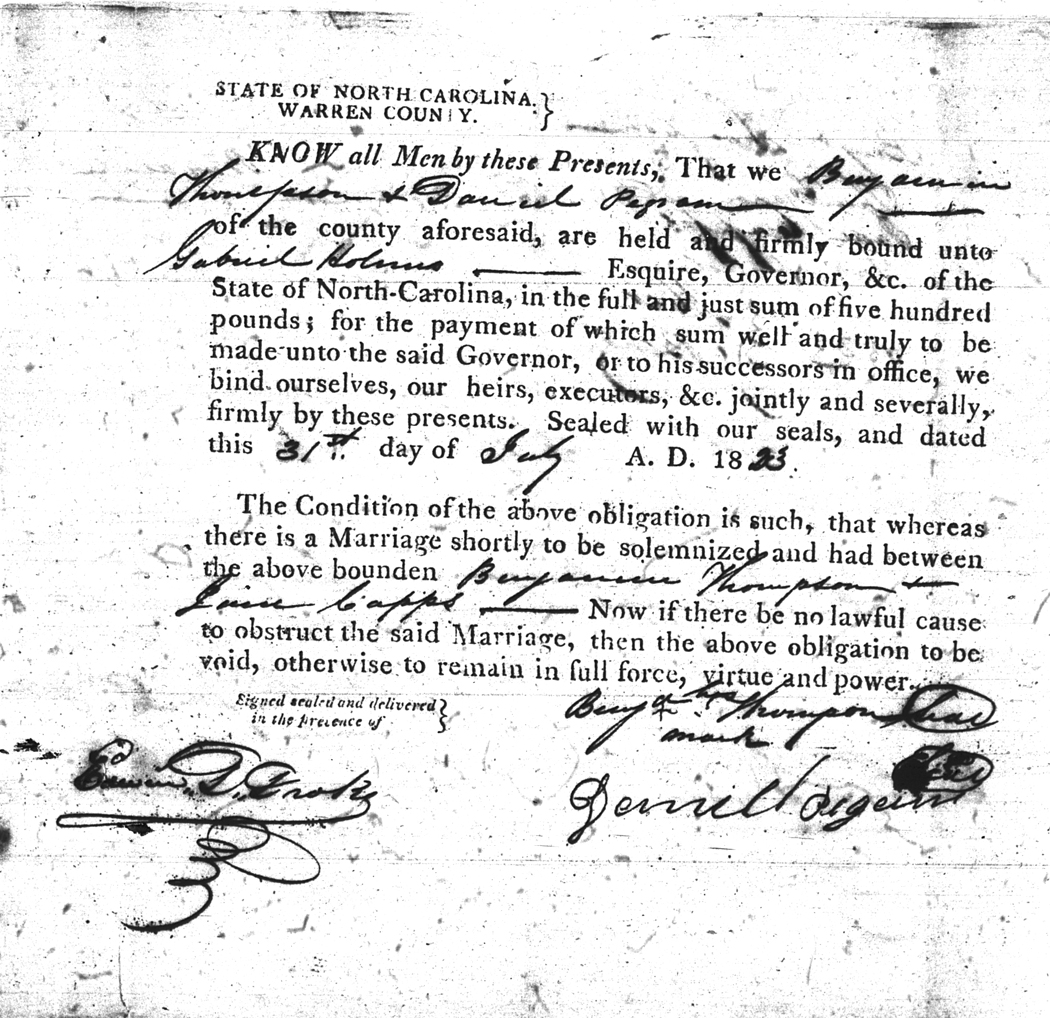 STATE OF NORTH CAROLINA.
WARREN COUNTY. }
KNOW all Men by these Presents, That we Benjamin
Thompson & Daniel Pegram
of the county aforesaid, are held and firmly bound unto
Gabriel Holmes Esquire, Governor, &c. of the
State of North-Carolina, in the full and just sum of five hundred
pounds; for the payment of which sum well and truly to be
made unto the said Governor, or to his successors in office, we
bind ourselves, our heirs, executors, &c. jointly and severally,
firmly by these presents. Sealed with our seals, and dated
this 31st. day of July A. D. 1823.
The Condition of the above obligation is such, that whereas
there is a Marriage shortly to be solemnized and had between
the above bounden Benjamin Thompson &
Jane Capps Now if there be no lawful cause
to obstruct the said Marriage, then the above obligation to be
void, otherwise to remain in full force, virtue and power.
Signed sealed and delivered }
in the presence of
his
Benj Thompson seal
mark
Edwin D. Drake